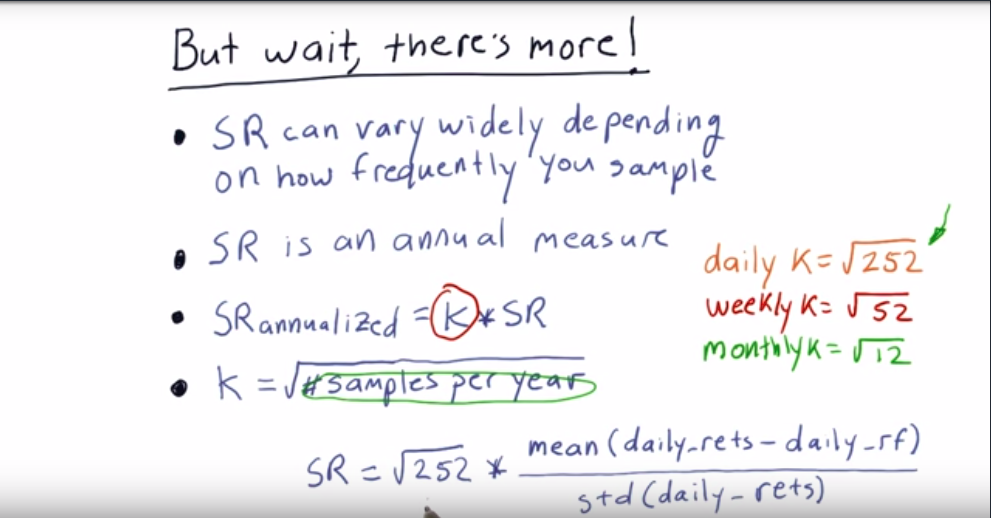 But wait, there's more!
• SR can vary widely depending
on how frequently you sample
• SR is an annual measure
• SRannualized = K * SR
• K = √#samples per year
daily K = √252
weekly K = √52
monthly K = √12
SR = √252 * mean(daily_rets - daily_rf)
std(daily_rets)